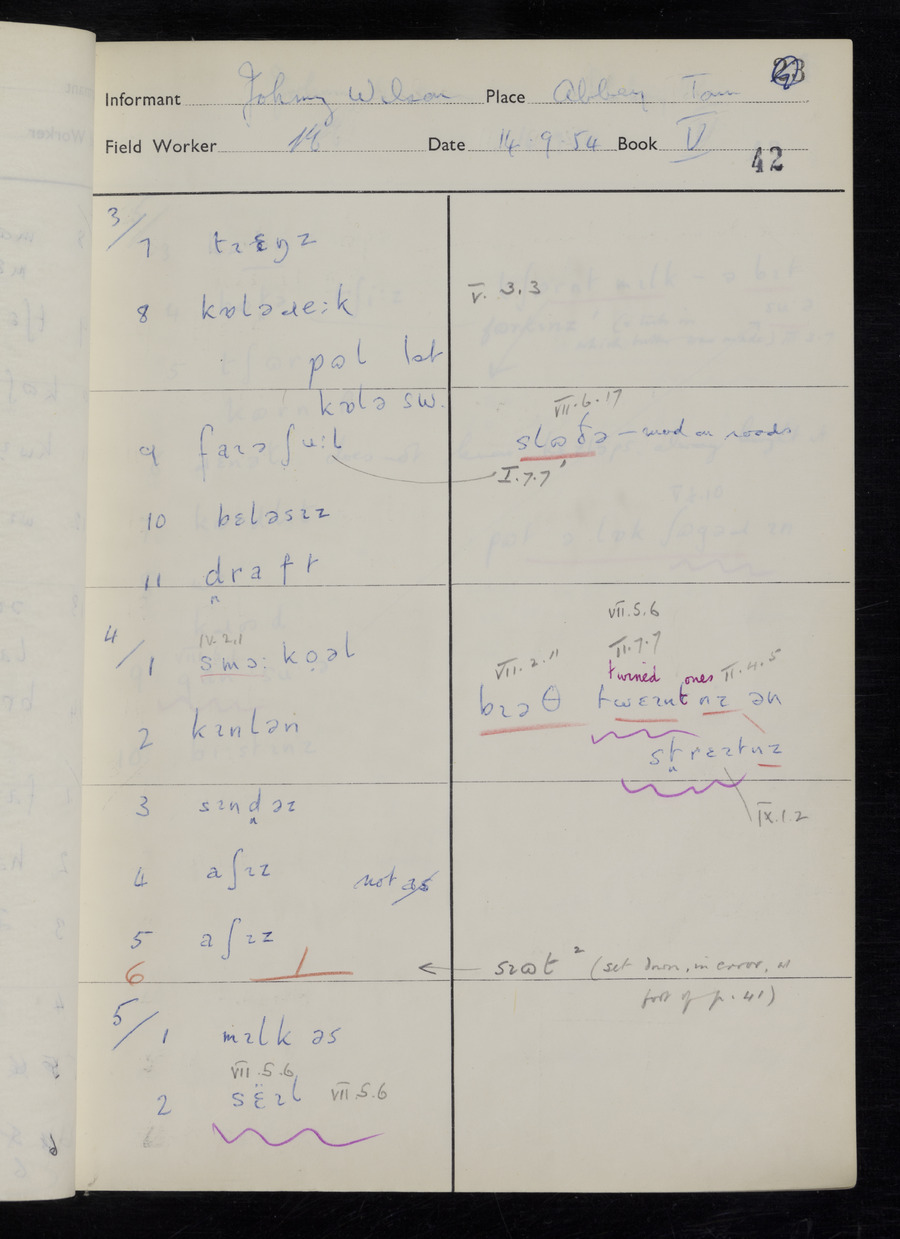 Informant Johnny Wilson Place Abbey Town
Field Worker Date 14.9.54 Book V
42
3/
7 tɹɛŋz
8 kɒləɹe:k V. 3.3
pɒl lat
kɒlə sw.
VII.6.17
9 farəʃʊ:l slɒðə – mud on roads
I.7.7
10 bɛləsɪz
11 draft
VII.5.6
4/ IV.2.1 VII.2.11 II.7.7
twined ones II.4.5
1 smɔ: kǫəl brəθ twɛɪntnz ən
2 kɪnlən strɛɪtnz
3 sɪndəz IX.1.2
4 aʃɪz not as
5 aʃɪz
6 ← sɪɷt ² (set down, in error, at
foot of p. 41)
5/ 1 mɪlk əs
VII.5.6
2 sɛ̈ɪl VII.5.6